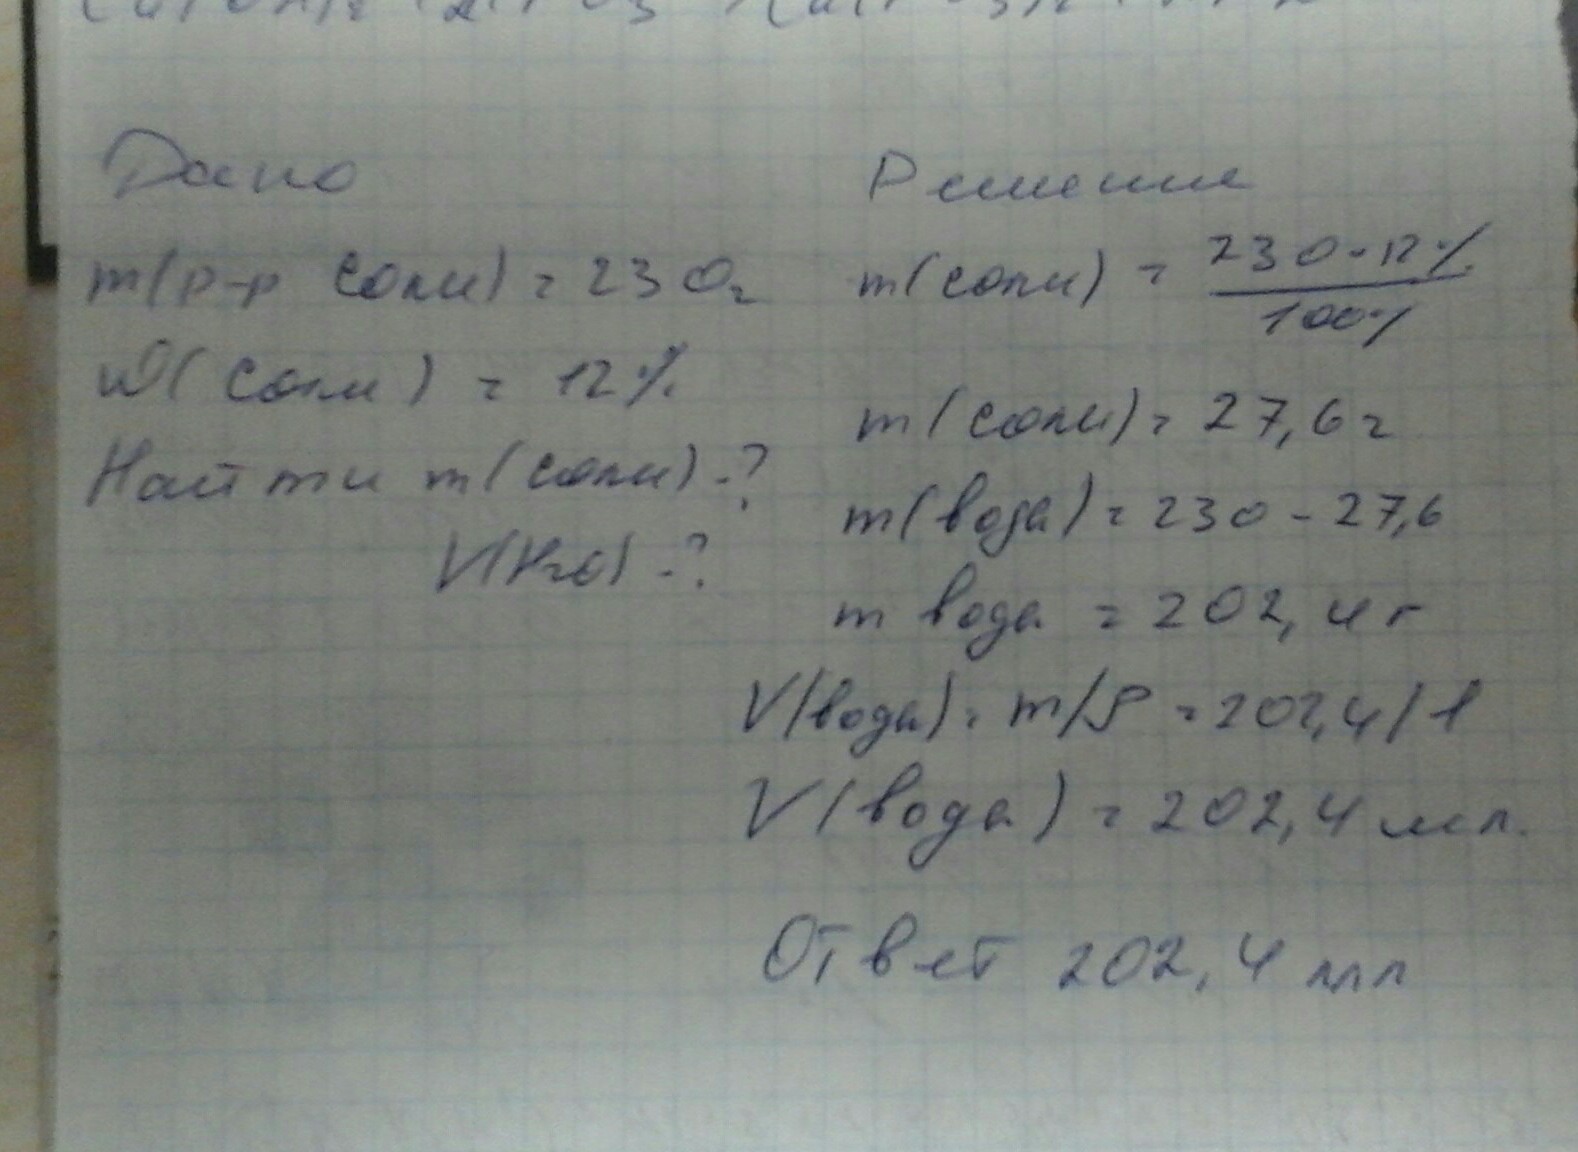 Дано
m(р-р соли) = 230г
ω(соли) = 12%
Найти m(соли) -?
V(H2O) -?
Решение
m(соли) = 230·12% / 100%
m(соли) = 27,6г
m(вода) = 230 - 27,6
m вода = 202,4г
V(вода) = m/ρ = 202,4/1
V(вода) = 202,4 мл.
Ответ 202,4 мл